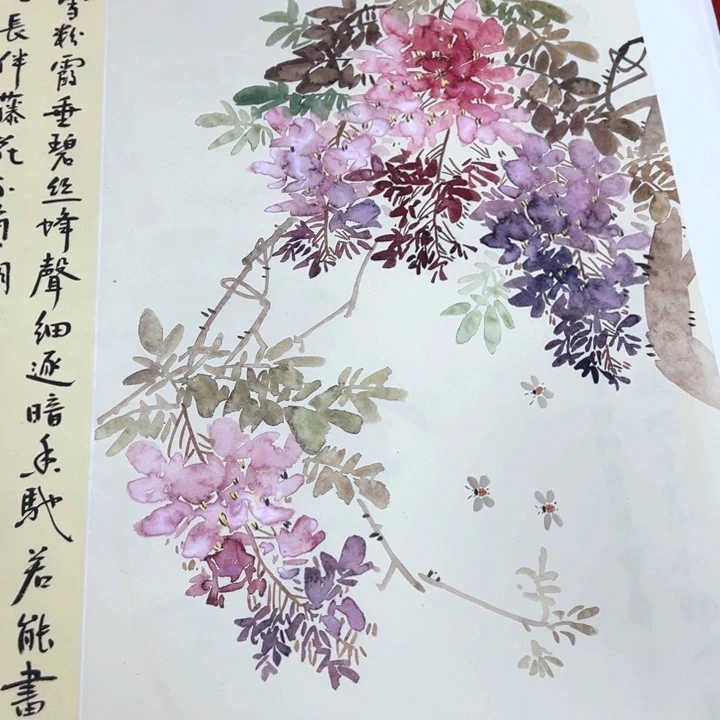 雪粉霞垂碧丝蜂聲细逐暗香馳若能書
長伴藤花